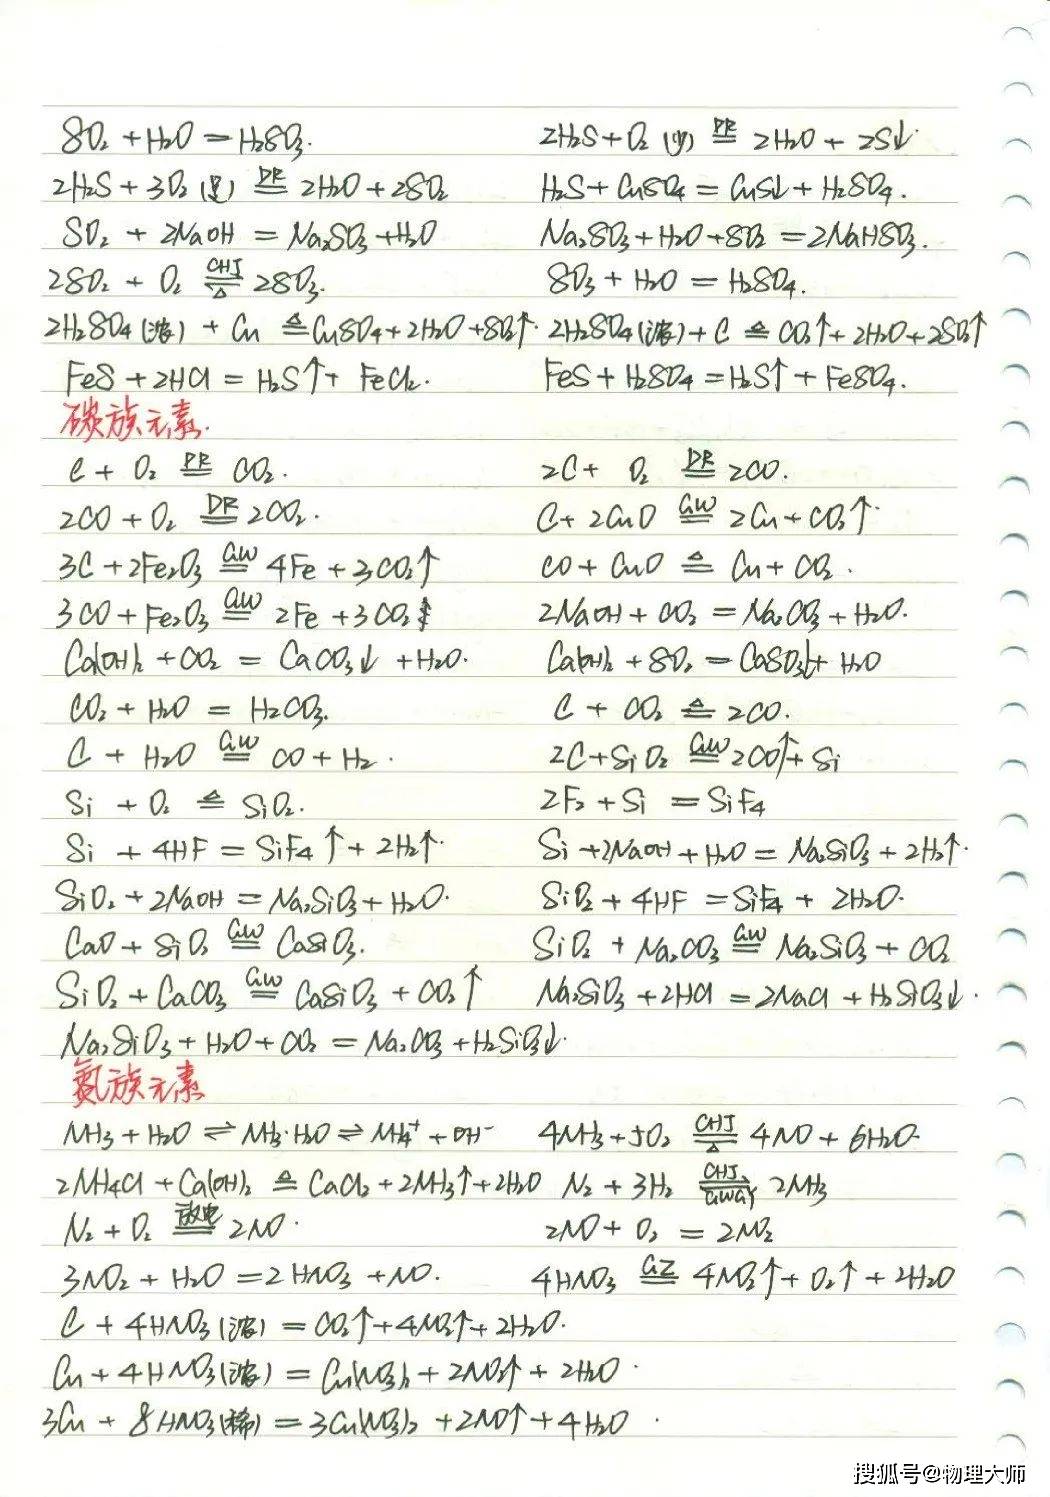 SO₂ + H₂O = H₂SO₃. 2H₂S + O₂ (少) DR== 2H₂O + 2S↓.
2H₂S + 3O₂ (足) DR== 2H₂O + 2SO₂ H₂S + CuSO₄ = CuS↓ + H₂SO₄.
SO₂ + 2NaOH = Na₂SO₃ + H₂O Na₂SO₃ + H₂O + SO₂ = 2NaHSO₃.
2SO₂ + O₂ CHJ==△ 2SO₃. SO₃ + H₂O = H₂SO₄.
2H₂SO₄(浓) + Cu △== CuSO₄ + 2H₂O + SO₂↑. 2H₂SO₄(浓) + C △== CO₂↑ + 2H₂O + 2SO₂↑
FeS + 2HCl = H₂S↑ + FeCl₂. FeS + H₂SO₄ = H₂S↑ + FeSO₄.
碳族元素.
C + O₂ DR== CO₂. 2C + O₂ DR== 2CO.
2CO + O₂ DR== 2CO₂. C + 2CuO GW== 2Cu + CO₂↑.
3C + 2Fe₂O₃ GW== 4Fe + 3CO₂↑ CO + CuO △== Cu + CO₂.
3CO + Fe₂O₃ GW== 2Fe + 3CO₂ 2NaOH + CO₂ = Na₂CO₃ + H₂O.
Ca(OH)₂ + CO₂ = CaCO₃↓ + H₂O. Ca(OH)₂ + SO₂ = CaSO₃↓ + H₂O
CO₂ + H₂O = H₂CO₃. C + CO₂ △== 2CO.
C + H₂O GW== CO + H₂. 2C + SiO₂ GW== 2CO↑ + Si
Si + O₂ △== SiO₂. 2F₂ + Si = SiF₄
Si + 4HF = SiF₄↑ + 2H₂↑. Si + 2NaOH + H₂O = Na₂SiO₃ + 2H₂↑.
SiO₂ + 2NaOH = Na₂SiO₃ + H₂O. SiO₂ + 4HF = SiF₄ + 2H₂O.
CaO + SiO₂ GW== CaSiO₃. SiO₂ + Na₂CO₃ GW== Na₂SiO₃ + CO₂
SiO₂ + CaCO₃ GW== CaSiO₃ + CO₂↑ Na₂SiO₃ + 2HCl = 2NaCl + H₂SiO₃↓.
Na₂SiO₃ + H₂O + CO₂ = Na₂CO₃ + H₂SiO₃↓.
氮族元素
NH₃ + H₂O ⇌ NH₃·H₂O ⇌ NH₄⁺ + OH⁻ 4NH₃ + 5O₂ CHJ==△ 4NO + 6H₂O.
2NH₄Cl + Ca(OH)₂ △== CaCl₂ + 2NH₃↑ + 2H₂O N₂ + 3H₂ CHJ⇌GWGY 2NH₃
N₂ + O₂ 放电== 2NO. 2NO + O₂ = 2NO₂
3NO₂ + H₂O = 2HNO₃ + NO. 4HNO₃ GZ== 4NO₂↑ + O₂↑ + 2H₂O
C + 4HNO₃(浓) = CO₂↑ + 4NO₂↑ + 2H₂O.
Cu + 4HNO₃(浓) = Cu(NO₃)₂ + 2NO₂↑ + 2H₂O.
3Cu + 8HNO₃(稀) = 3Cu(NO₃)₂ + 2NO↑ + 4H₂O.
搜狐号@物理大师